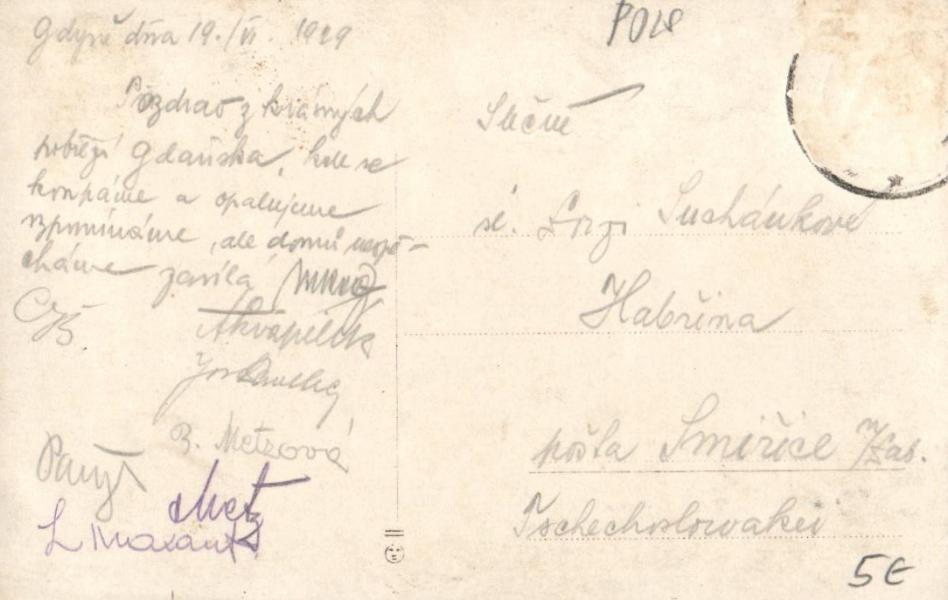 Gdyně dňa 19./VI. 1929
Pozdrav z krásných
pobřeží Gdaňska, kde se
koupáme a opalujeme
vzpomínáme, ale domů nespě-
cháme zasílá
Akvapilík
B. Metzová
Metz
POLS
Slečně
sl. Suchánkové
Habřina
pošta Smiřice n/Lab.
Tschechoslowakei
5€